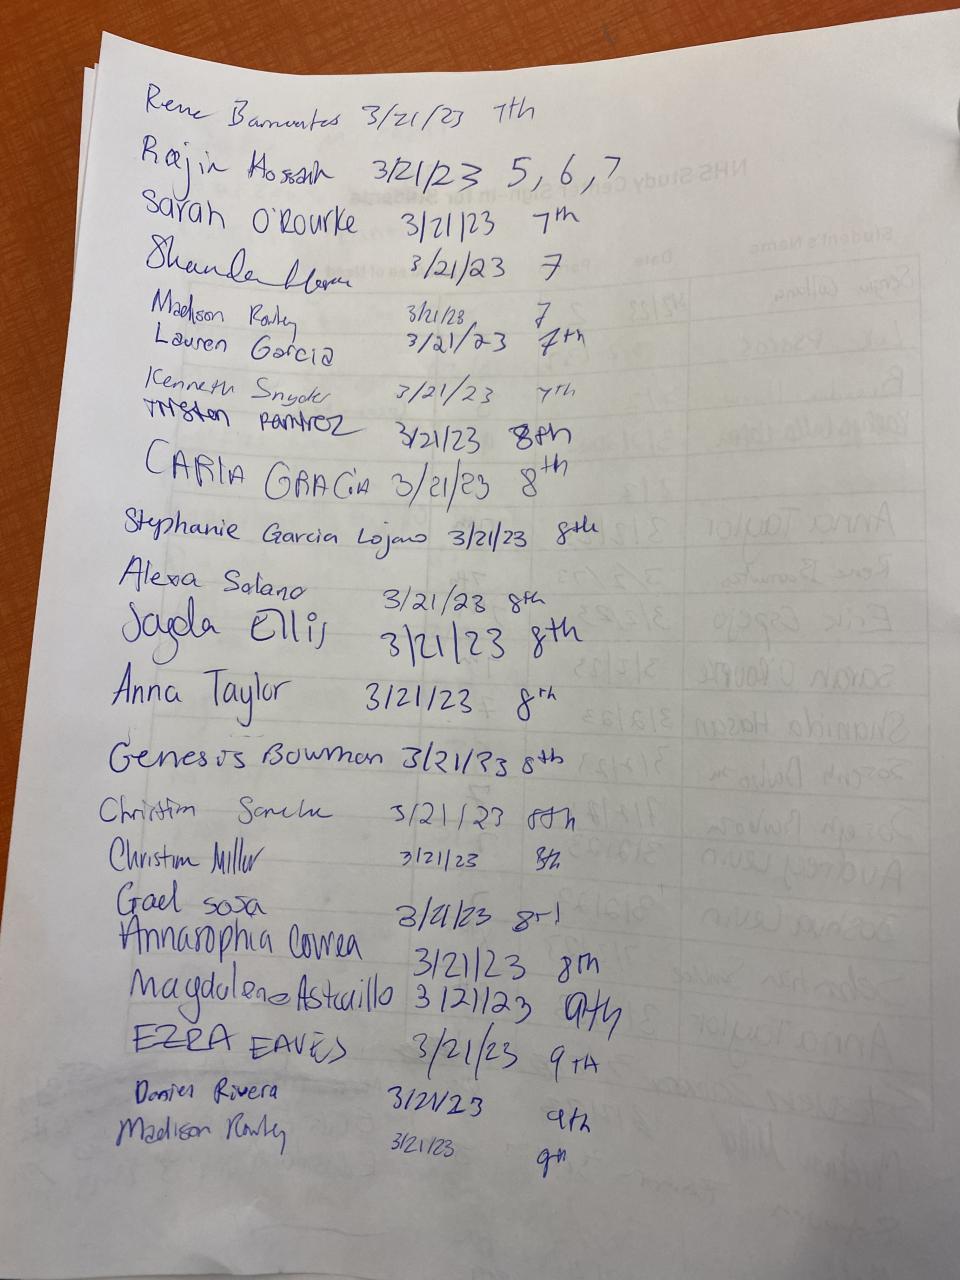 Rene Barrientos 3/21/23 7th
Rajin Hossain 3/21/23 5, 6, 7
Sarah O'Rourke 3/21/23 7th
3/21/23 7
Madison Rowley 3/21/23 7
Lauren Garcia 3/21/23 7th
Kenneth Snyder 3/21/23 7th
Tristen Ramirez 3/21/23 8th
CARLA GRACIA 3/21/23 8th
Stephanie Garcia Lojano 3/21/23 8th
Alexa Solano 3/21/23 8th
Jayda Ellis 3/21/23 8th
Anna Taylor 3/21/23 8th
Genesis Bowman 3/21/23 8th
Christian 3/21/23 8th
Christian Miller 3/21/23 8th
Gael sosa 3/21/23
Annasophia Correa 3/21/23 8th
Magdalena Astudillo 3/21/23 9th
EZRA EAVES 3/21/23 9TH
Daniel Rivera 3/21/23 9th
Madison Rowley 3/21/23 9th